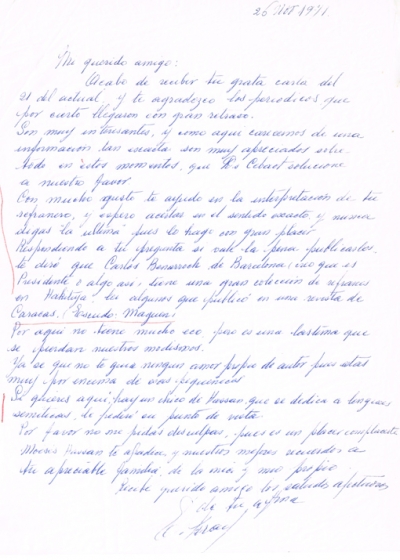 26 Oct 1971
Mi querido amigo:
Acabo de recibir tu grata carta del
21 del actual, y te agradezco los periodicos que
por cierto llegaron con gran retraso.
Son muy interesantes, y como aqui carecemos de una
informacion tan son muy apreciados sobre
todo en estos momentos, que solucione
a nuestro favor
Con mucho gusto te ayudo en la interpretación de tu
refranero, y espero aciertes en el sentido exacto, y nunca
digas la ultima pues lo hago con gran placer
Respondiendo a tu pregunta si vale la pena publicarlos,
te diré que Carlos Benarroch de Barcelona (creo que es
Presidente o algo asi) tiene una gran colección de refranes
en Haketija lei algunos que publicó en una revista de
Caracas. (Maguen)
Por aqui no tiene mucho eco pero es una lastima que
se pierdan nuestros modismos.
Ya se que no te guia ningun amor propio de autor pues estas
muy por encima de esas pequeñeces
Si quieres aqui, hay un chico de Hassan, que se dedica a lenguas
semiticas, le pediré su punto de vista
Por favor no me pidas disculpas, pues es un placer complacerte
Moises Hassan te y nuestros mejores recuerdos a
tu apreciable familia, de la mia y mio propio.
Recibe querido amigo los saludos afectuosos
de tu